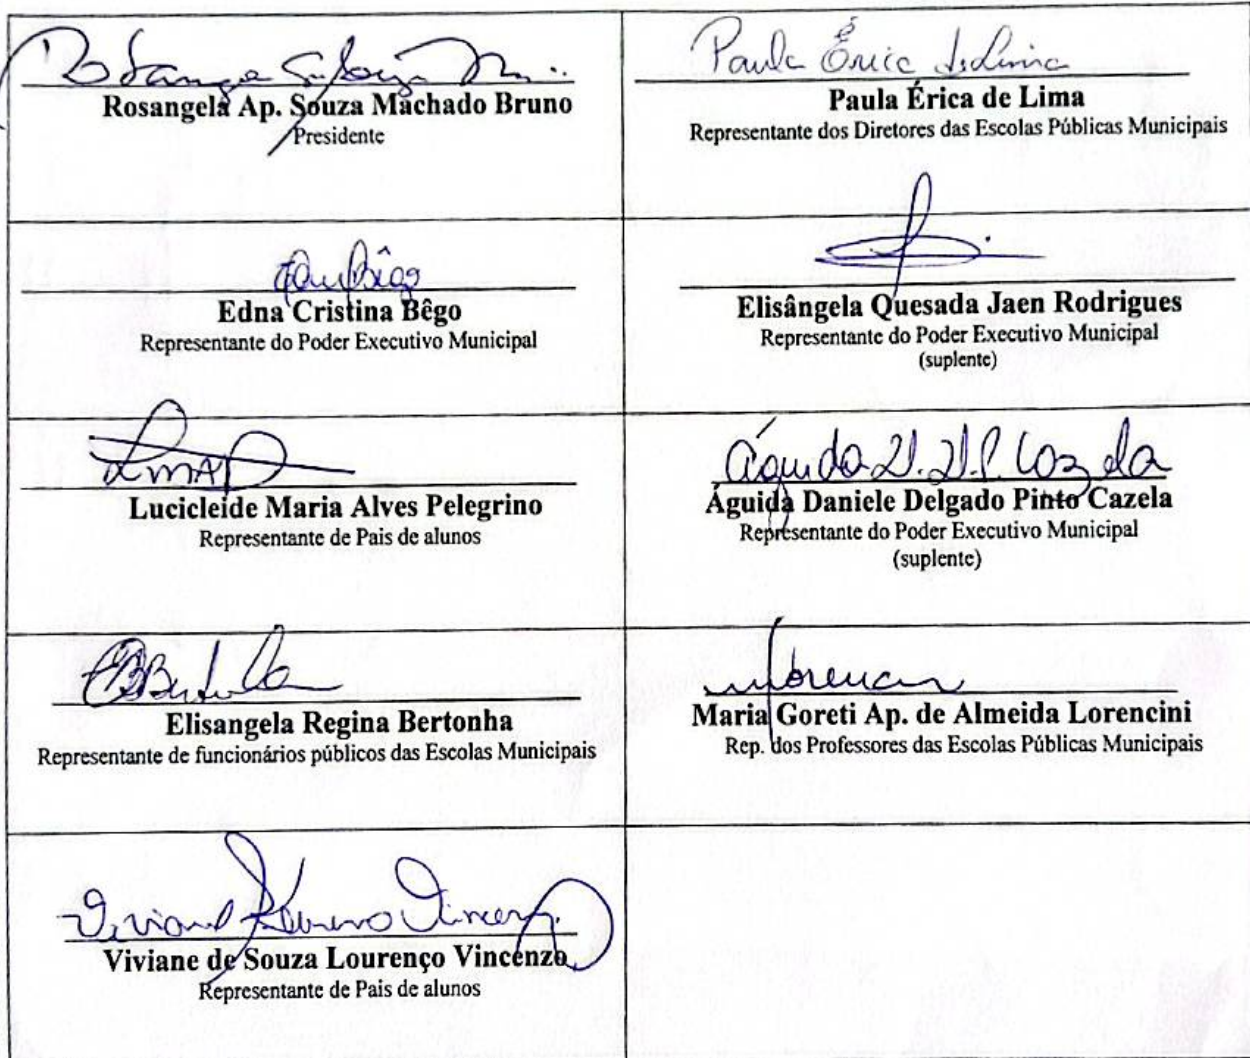 Rosangela Ap. Souza Machado Bruno
Presidente
Paula Érica de Lima
Paula Érica de Lima
Representante dos Diretores das Escolas Públicas Municipais
Edna Cristina Bêgo
Representante do Poder Executivo Municipal
Elisângela Quesada Jaen Rodrigues
Representante do Poder Executivo Municipal
(suplente)
LMAP
Lucicleide Maria Alves Pelegrino
Representante de Pais de alunos
Águida D. D. P. Cazela
Águida Daniele Delgado Pinto Cazela
Representante do Poder Executivo Municipal
(suplente)
Elisangela Regina Bertonha
Representante de funcionários públicos das Escolas Municipais
Maria Goreti Ap. de Almeida Lorencini
Rep. dos Professores das Escolas Públicas Municipais
Viviane de Souza Lourenço Vincenzo
Representante de Pais de alunos